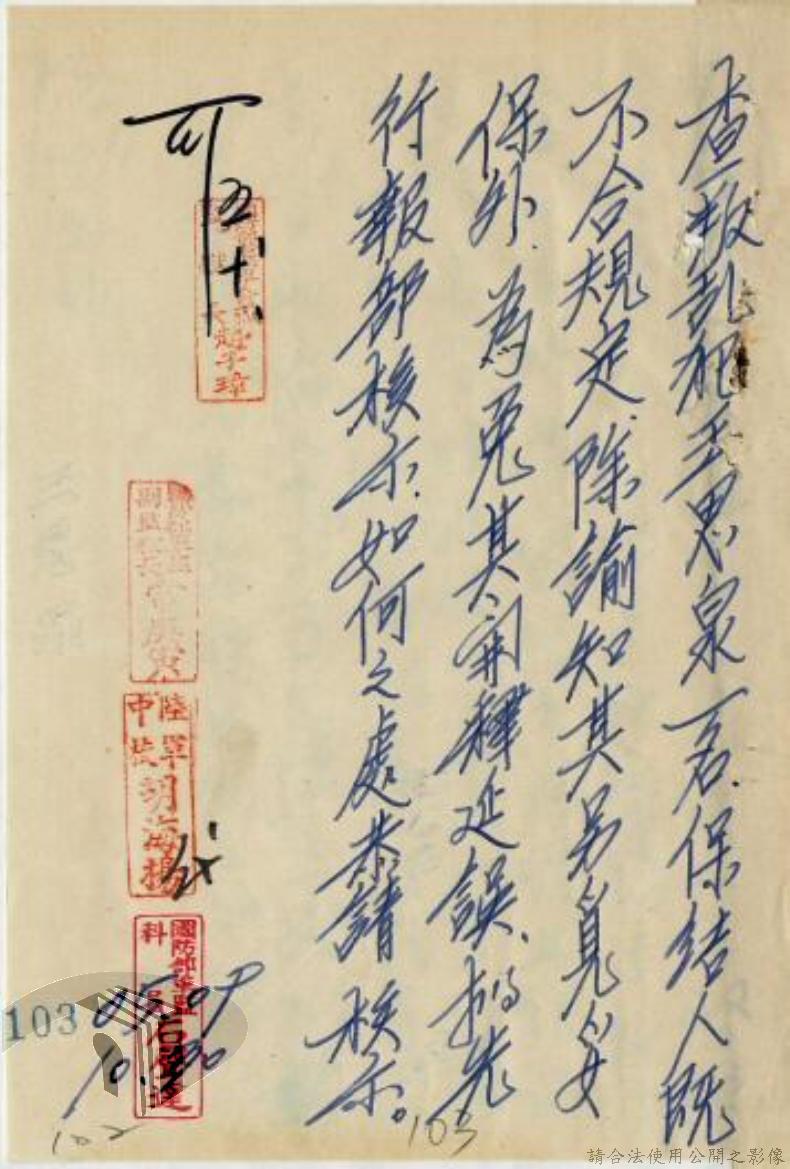 查叛乱犯王思泉一名、保结人既
不合規定、除諭知其另覓妥
保外、為免其開釋延誤、擬先
行報部核示、如何之處恭請 核示。
可
五
十
趙
璋
副監
陸軍
中校
胡海楊
代
國防部軍監
科
0509
10
103
102
103
請合法使用公開之影像